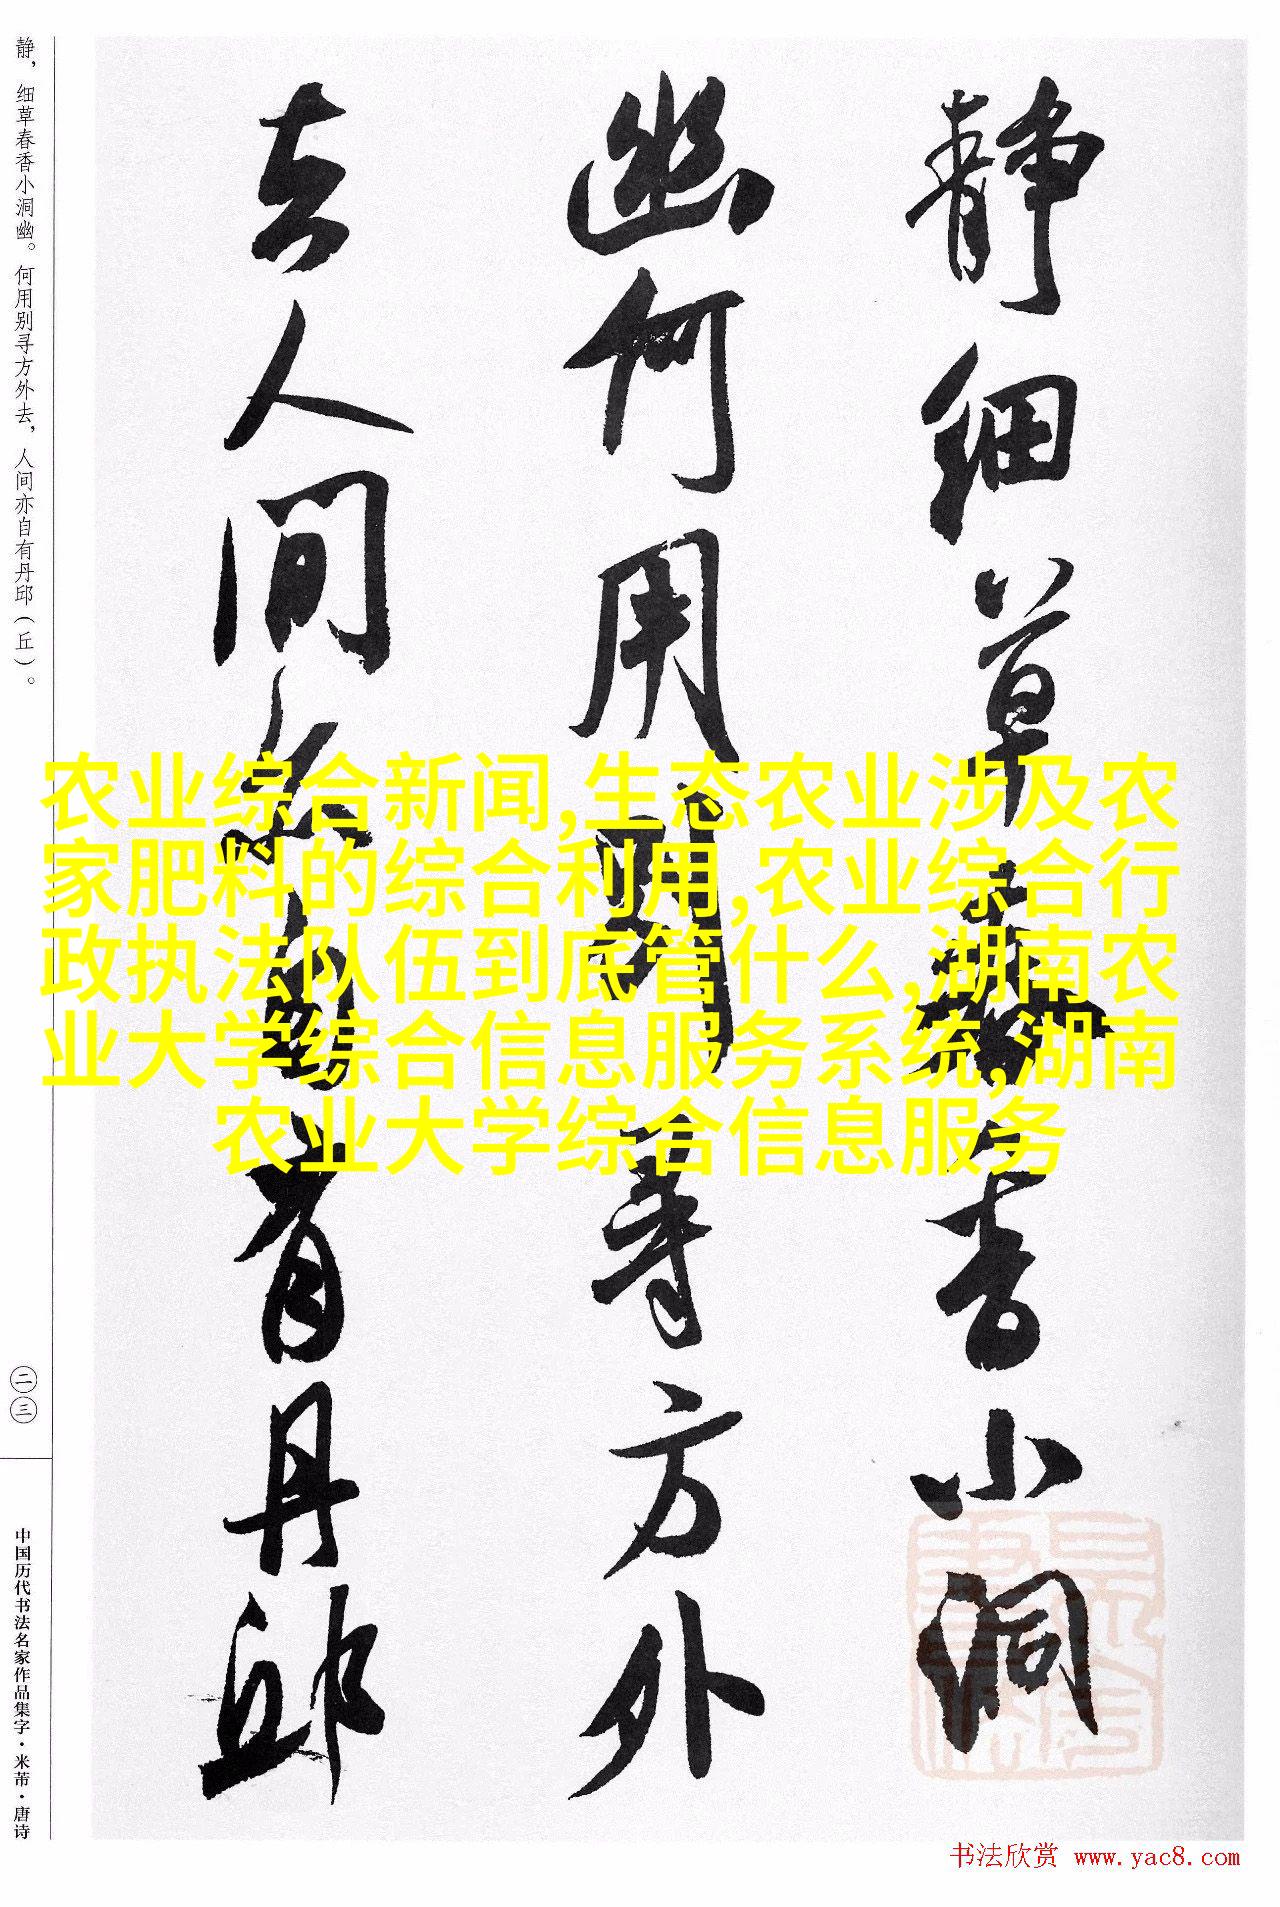 静细草春香小洞
幽何用别寻方外
去人间亦自有丹邱
静，细草春香小洞幽。何用别寻方外去，人间亦自有丹邱（丘）。
二三
中国历代书法名家作品集字·米芾·唐诗
农业综合新闻,生态农业涉及农
家肥料的综合利用,农业综合行
政执法队伍到底管什么,湖南农
业大学综合信息服务系统,湖南
农业大学综合信息服务
书法欣赏 www.yac8.com